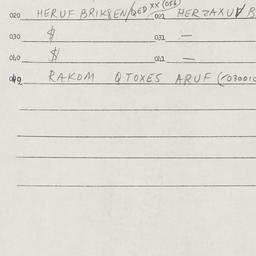 020 HERUF BRIKSEN/QED XX (056) 022 HERZAXUV B
030 $ 031 —
040 $ 041 —
049 RAKOM QTOXES ARUF (030010